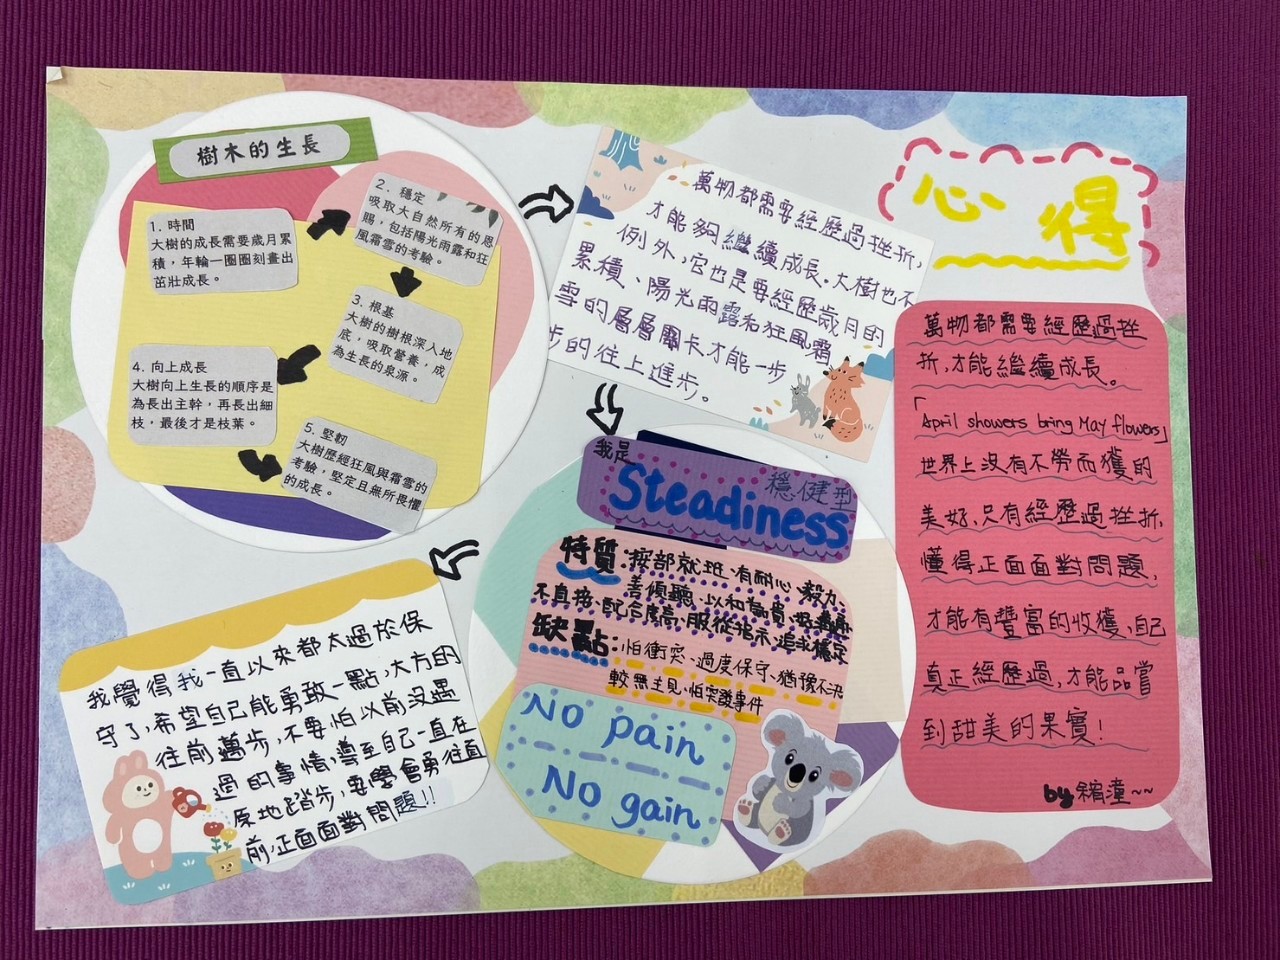 樹木的生長
1. 時間
大樹的成長需要歲月累
積，年輪一圈圈刻畫出
茁壯成長。
2. 穩定
吸取大自然所有的恩
賜，包括陽光雨露和狂
風霜雪的考驗。
3. 根基
大樹的樹根深入地
底，吸取營養，成
為生長的泉源。
4. 向上成長
大樹向上生長的順序是
為長出主幹，再長出細
枝，最後才是枝葉。
5. 堅韌
大樹歷經狂風與霜雪的
考驗，堅定且無所畏懼
的成長。
萬物都需要經歷過挫折，
才能夠繼續成長。大樹也不
例外，它也是要經歷歲月的
累積、陽光雨露和狂風霜
雪的層層關卡才能一步
步的往上進步。
我是
Steadiness
穩健型
特質：按部就班、有耐心、毅力、
善傾聽、以和為貴、
不直接、配合度高、服從指示、追求穩定
缺點：怕衝突、過度保守、猶豫不決
較無主見、怕突發事件
No pain
No gain
我覺得我一直以來都太過於保
守了，希望自己能勇敢一點，大方的
往前邁步，不要怕以前沒遇
過的事情，導至自己一直在
原地踏步，要學會勇往直
前，正面面對問題!!
心得
萬物都需要經歷過挫
折，才能繼續成長。
「April showers bring May flowers」
世界上沒有不勞而獲的
美好，只有經歷過挫折，
懂得正面面對問題，
才能有豐富的收獲，自己
真正經歷過，才能品嘗
到甜美的果實！
by 縮潼~~